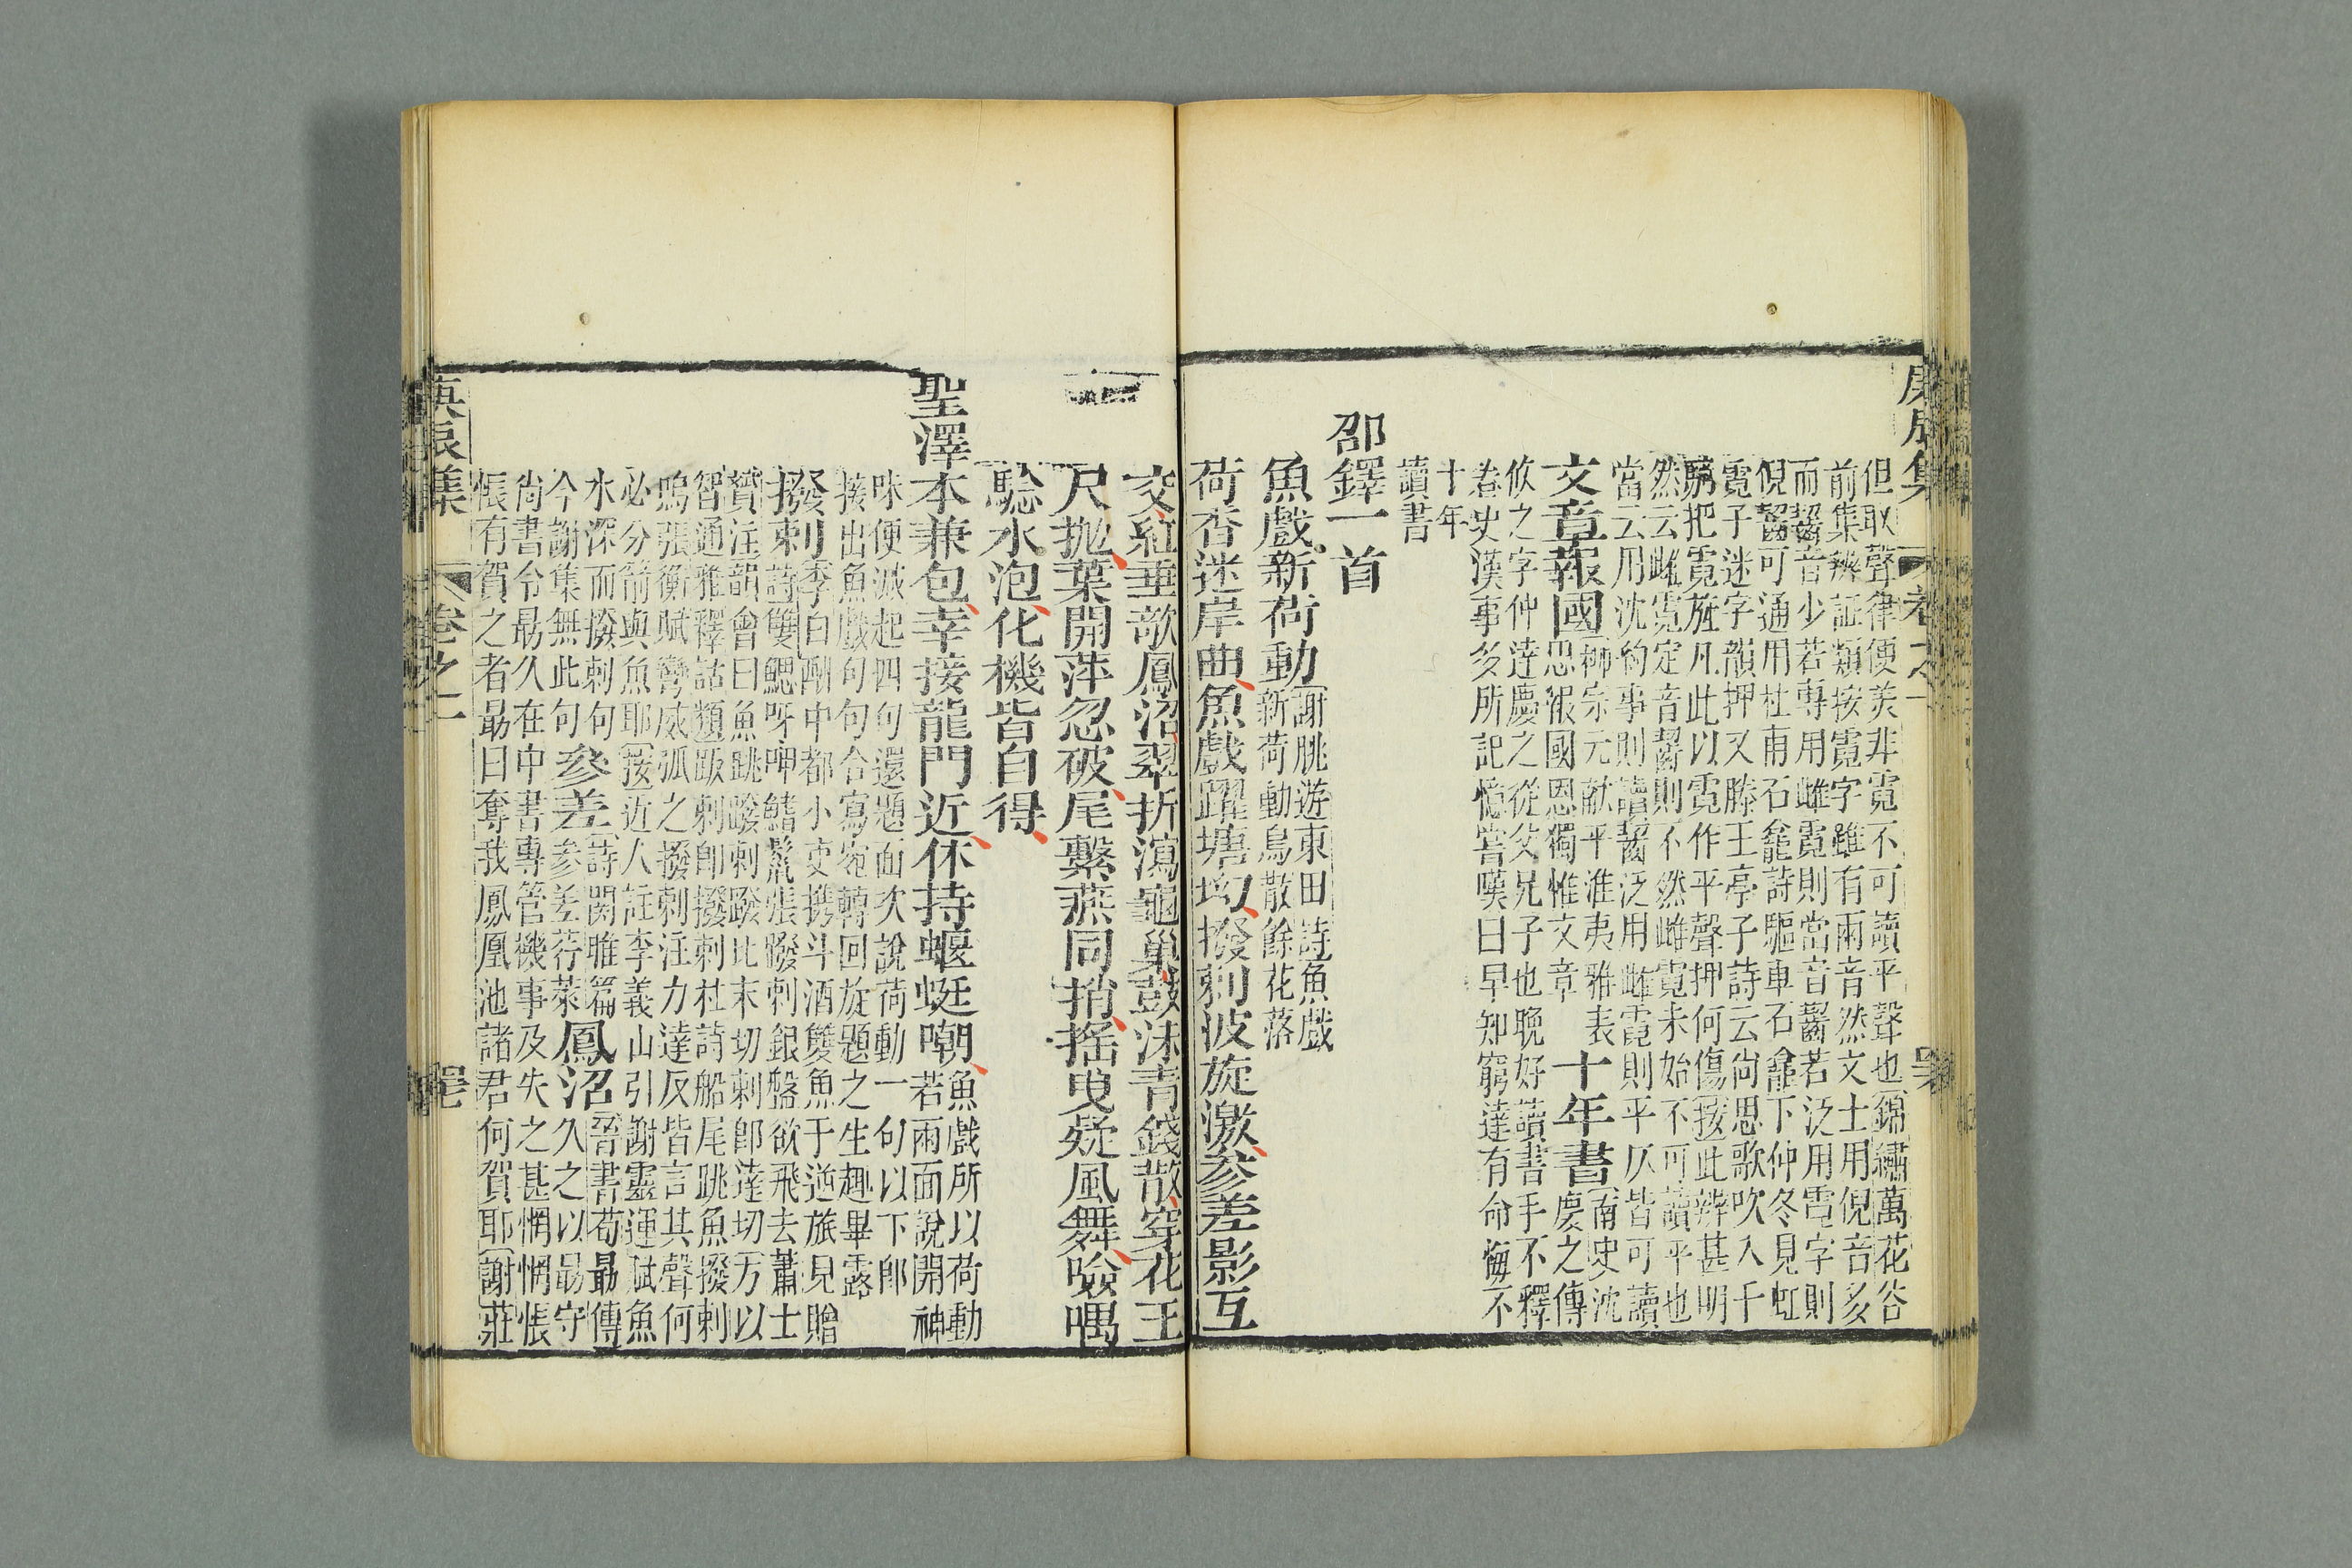 庚辰集 卷之一
但取聲律便美非霓不可讀平聲也錦繡萬花谷
前集辨証類按霓字雖有兩音然文士用倪音多
而齧音少若專用雌霓則當音齧若泛用霓字則
倪齧可通用杜甫石龕詩驅車石龕下仲冬見虹
霓子迷字韻押又滕王亭子詩云尚思歌吹入千
騎把霓旌凡此以霓作平聲押何傷按此辨甚明
然云雌霓定音齧則不然雌霓未始不可讀平也
當云用沈約事則讀齧泛用雌霓則平仄皆可讀
文章報國 柳宗元献平淮夷雅表恩報國恩獨惟文章 十年書 南史沈慶之傳
攸之字仲達慶之從父兄子也晚好讀書手不釋
卷史漢事多所記憶嘗嘆曰早知窮達有命悔不
十年
讀書
邵鐸一首
魚戲新荷動 謝朓遊東田詩魚戲
新荷動鳥散餘花落
荷香迷岸曲魚戲躍塘坳撥剌波旋激參差影互
交紅垂欹鳳沼翠折瀉龜巢鼓沫青錢散穿花玉
尺抛葉開萍忽破尾繫燕同捎搖曳疑風舞噞喁
驗水泡化機皆自得
聖澤本兼包幸接龍門近休持蝘蜓嘲 魚戲所以荷動
若兩面說開神
味便減起四句還題面次說荷動一句以下卽
接出魚戲句句合寫宛轉回旋題之生趣畢露
撥剌 李白酬中都小吏携斗酒雙魚于逆旅見贈
詩雙鰓呀呷鰭鬣張撥剌銀盤欲飛去蕭士
贇注韻會曰魚跳跋剌撥比末切剌卽達切方以
智通雅釋詁類跋剌卽撥剌杜詩船尾跳魚撥剌
鳴張衡賦彎威弧之撥剌注力達反皆言其聲何
必分箭與魚耶按近人註李義山引謝靈運賦魚
水深而撥剌句
今謝集無此句 參差 詩關雎篇
參差荇菜 鳳沼 晉書荀勗傳
久之以勗守
尚書令勗久在中書專管機事及失之甚惘惘悵
悵有賀之者勗曰奪我鳳凰池諸君何賀耶謝莊
庚辰集 卷之一